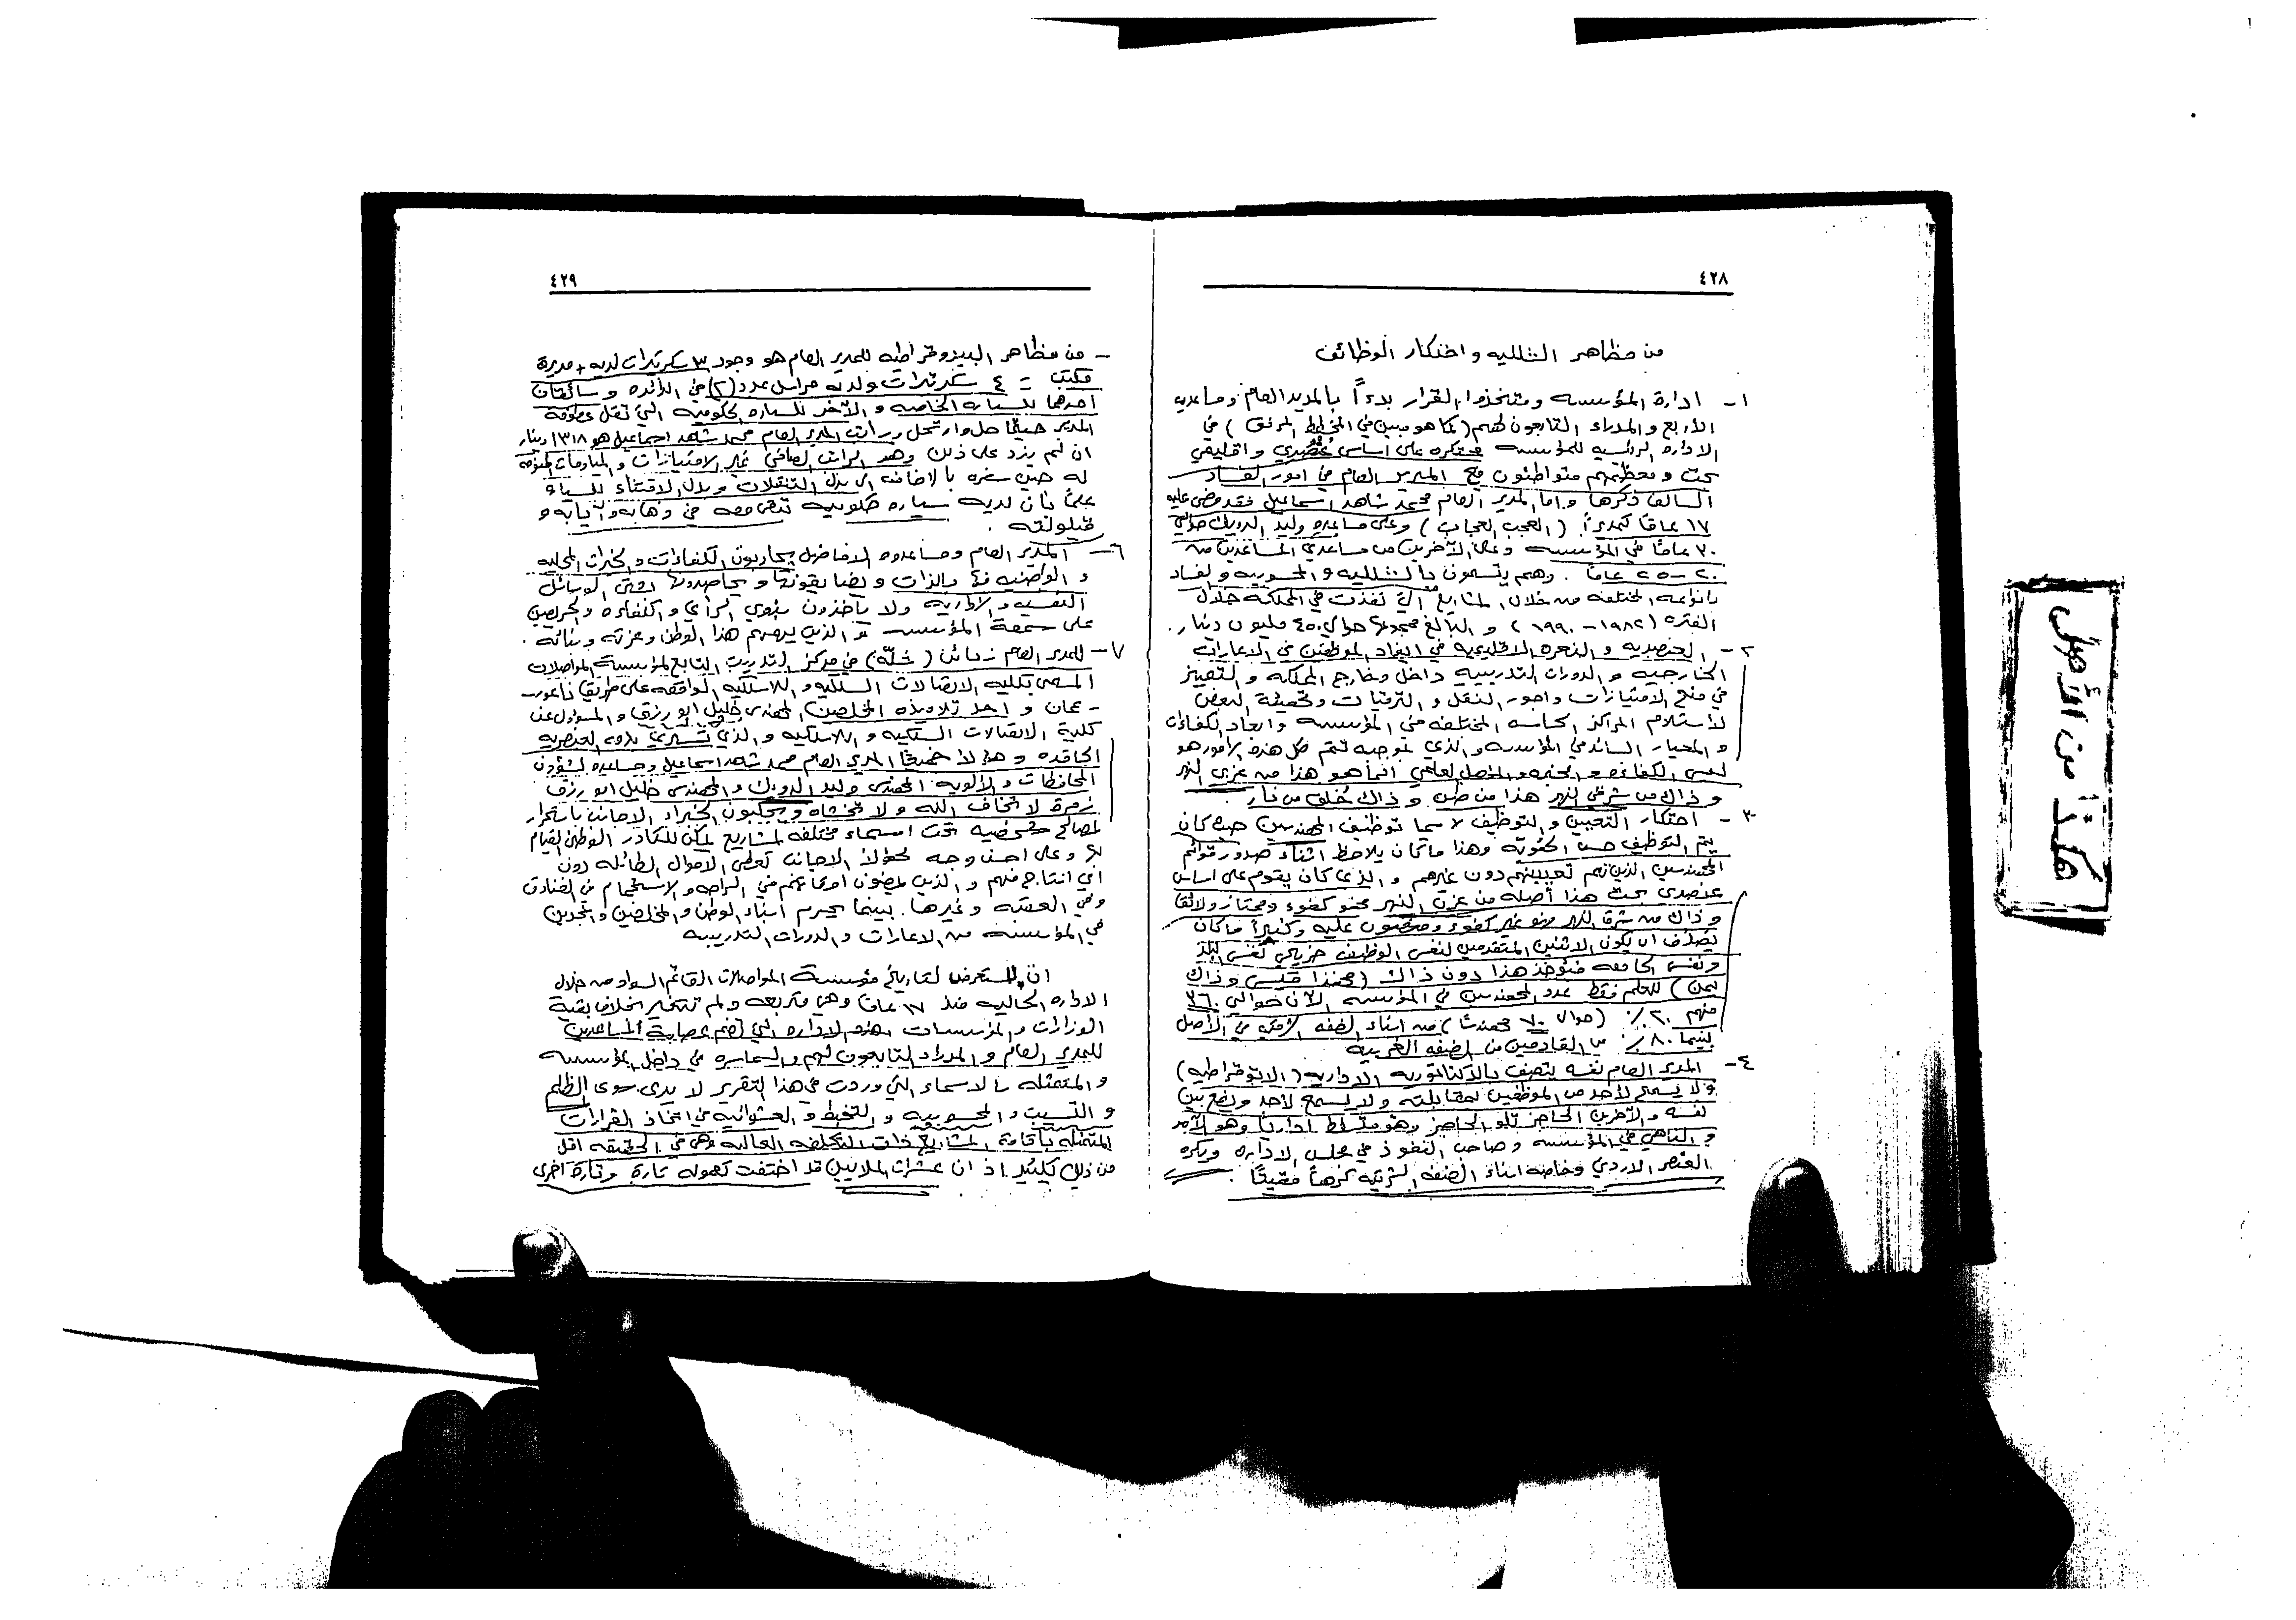 ٤٢٨
من مظاهر الشلليه واحتكار الوظائف
١- ادارة المؤسسه ومتخذوا القرار بدءاً بالمدير العام ومساعديه
الأربع والمدراء التابعون لهم (كما هو مبين في المخطط المرفق) في
الادارة الرئسيه للمؤسسه محتكره على اساس عنصري واقليمي
بحت ومعظمهم متواطئون مع المدير العام في امور الفساد
السالف ذكرها واما المدير العام محمد شاهد اسماعيل فقد مضى عليه
١٧ عاماً كمديراً. (العجب العجاب) وعلى مساعده وليد الدويك حوالي
٣٠ عاماً في المؤسسه وعلى الآخرين من مساعدي المساعدين من
٢٠-٢٥ عاماً. وهم يتسمون بالشلليه والمحسوبيه والفساد
بانواعه المختلفه من خلال المشاريع التي نفذت في المملكة خلال
الفتره (١٩٨٢-١٩٩٠) والبالغ مجموعها حوالي ٤٥٠ مليون دينار.
٢- العنصريه والنعره الاقليميه في ايفاد الموظفين في الاعارات
الخارجيه والدورات التدريبيه داخل وخارج المملكه والتمييز
في منح الامتيازات واجور النقل والترقيات وتهيئة البعض
لاستلام المراكز الحساسه المختلفه في المؤسسه وابعاد الكفاءات
والمعيار السائد في المؤسسه والذي بموجبه تتم كل هذه الامور هو
ليس الكفاءه والخبره والمؤهل العلمي انما هو هذا من غربي النهر
وذاك من شرقي النهر هذا من طين وذاك خُلق من نار.
٣- احتكار التعيين والتوظيف لا سيما توظيف المهندسين حيث كان
يتم التوظيف حسب الهويه وهذا ما كان يلاحظ اثناء صدور قوائم
المهندسين الذين تم تعيينهم دون غيرهم والذي كان يقوم على اساس
عنصري بحت هذا أصله من غرب النهر فهو كفوء وممتاز ولائق
وذاك من شرق النهر فهو غير كفوء ومغضوب عليه وكثيراً ما كان
يصادف ان يكون الاثنين المتقدمين لنفس الوظيفه خريجي نفس البلد
ونفس الجامعه فيؤخذ هذا دون ذاك (فهذا قيسي وذاك
يمن) للعلم فقط عدد المهندسين في المؤسسه الآن حوالي ٣٦٠
منهم ٢٠٪ (حوالي ٧٠ مهندساً) من ابناء الضفه الشرقيه في الأصل
بينما ٨٠٪ من القادمين من الضفه الغربيه
٤- المدير العام نفسه يتصف بالدكتاتوريه الاداريه (الاتوقراطيه)
ولا يسمح لأحد من الموظفين بمقابلته ولا يسمع لأحد ويضع بين
نفسه والآخرين الحاجز تلو الحاجز وهو متسلط ادارياً وهو الآمر
والناهي في المؤسسه وصاحب النفوذ في مجلس الاداره ويكره
العنصر الاردني وخاصه ابناء الضفه الشرقيه كرهاً مقيتاً.
٤٢٩
- من مظاهر البيروقراطيه للمدير العام هو وجود ٣ سكرتيرات لديه + مديرة
مكتب = ٤ سكرتيرات ولديه مراسل عدد (٢) في الدائره وسائقان
احدهما للسياره الخاصه والآخر للسياره الحكوميه التي تقل عطوفة
المدير حيثما حل وارتحل وراتب المدير العام محمد شاهد اسماعيل هو ١٣١٨ دينار
ان لم يزد على ذلك وهو الراتب الصافي غير الامتيازات والمياومات الممنوحه
له حين سفره بالاضافه الى بدل التنقلات وبدل الاقتناء للسياره
علماً بأن لديه سياره حكوميه تقف معه في ذهابه وايابه و
قيلولته.
٦- المدير العام ومساعدوه الافاضل يحاربون الكفاءات والخبرات المحليه
والوطنيه منها بالذات ويضايقونها ويحاصرونها بشتى الوسائل
النفسيه والاداريه ولا يأخذون بذوي الرأي والكفاءه والحريصين
على سمعة المؤسسه والذين يهمهم هذا الوطن وعزته وبنائه.
٧- للمدير العام زبائن (شلّه) في مركز التدريب التابع لمؤسسة المواصلات
المسمى بكلية الاتصالات السلكيه واللاسلكيه الواقعه على طريق ناعور
- عمان واحد تلاميذه المخلصين المهندس خليل ابو رزق والمسؤول عن
كلية الاتصالات السلكيه واللاسلكيه والذي تسري بدمه العنصريه
الحاقده وهؤلاء جميعاً المدير العام محمد شاهد اسماعيل ومساعده لشؤون
المحافظات والألويه المهندس وليد الدويك والمهندس خليل ابو رزق
زمرة لا تخاف الله ولا تخشاه ويجلبون الخبراء الاجانب باستمرار
لمصالح شخصيه تحت اسماء مختلفه لمشاريع يمكن للكادر الوطني القيام
بها وعلى احسن وجه لهؤلاء الاجانب تعطى الاموال الطائله دون
اي انتاج منهم والذين يمضون اوقاتهم في الراحه والاستجمام في الفنادق
وفي العقبه وغيرها. بينما يحرم ابناء الوطن والمخلصين والمجدين
في المؤسسه من الاعارات والدورات التدريبيه
ان المستعرض لتاريخ مؤسسة المواصلات القاتم السواد من خلال
الاداره الحاليه منذ ١٧ عاماً وهي متربعه ولم تتغير بخلاف بقية
الوزارات والمؤسسات هذه الاداره التي تضم عصابة المساعدين
للمدير العام والمدراء التابعون لهم والسماسره في داخل المؤسسه
والمتمثله بالاسماء التي وردت في هذا التقرير لا يرى سوى الظلم
والتسيب والمحسوبيه والتخبط والعشوائيه في اتخاذ القرارات
المتمثله بأقامة المشاريع ذات التكلفه العاليه وهي في الحقيقه اقل
من ذلك بكثير اذ ان عشرات الملايين قد اختفت كعموله تارة وتارة اخرى
هكذا من الأصل